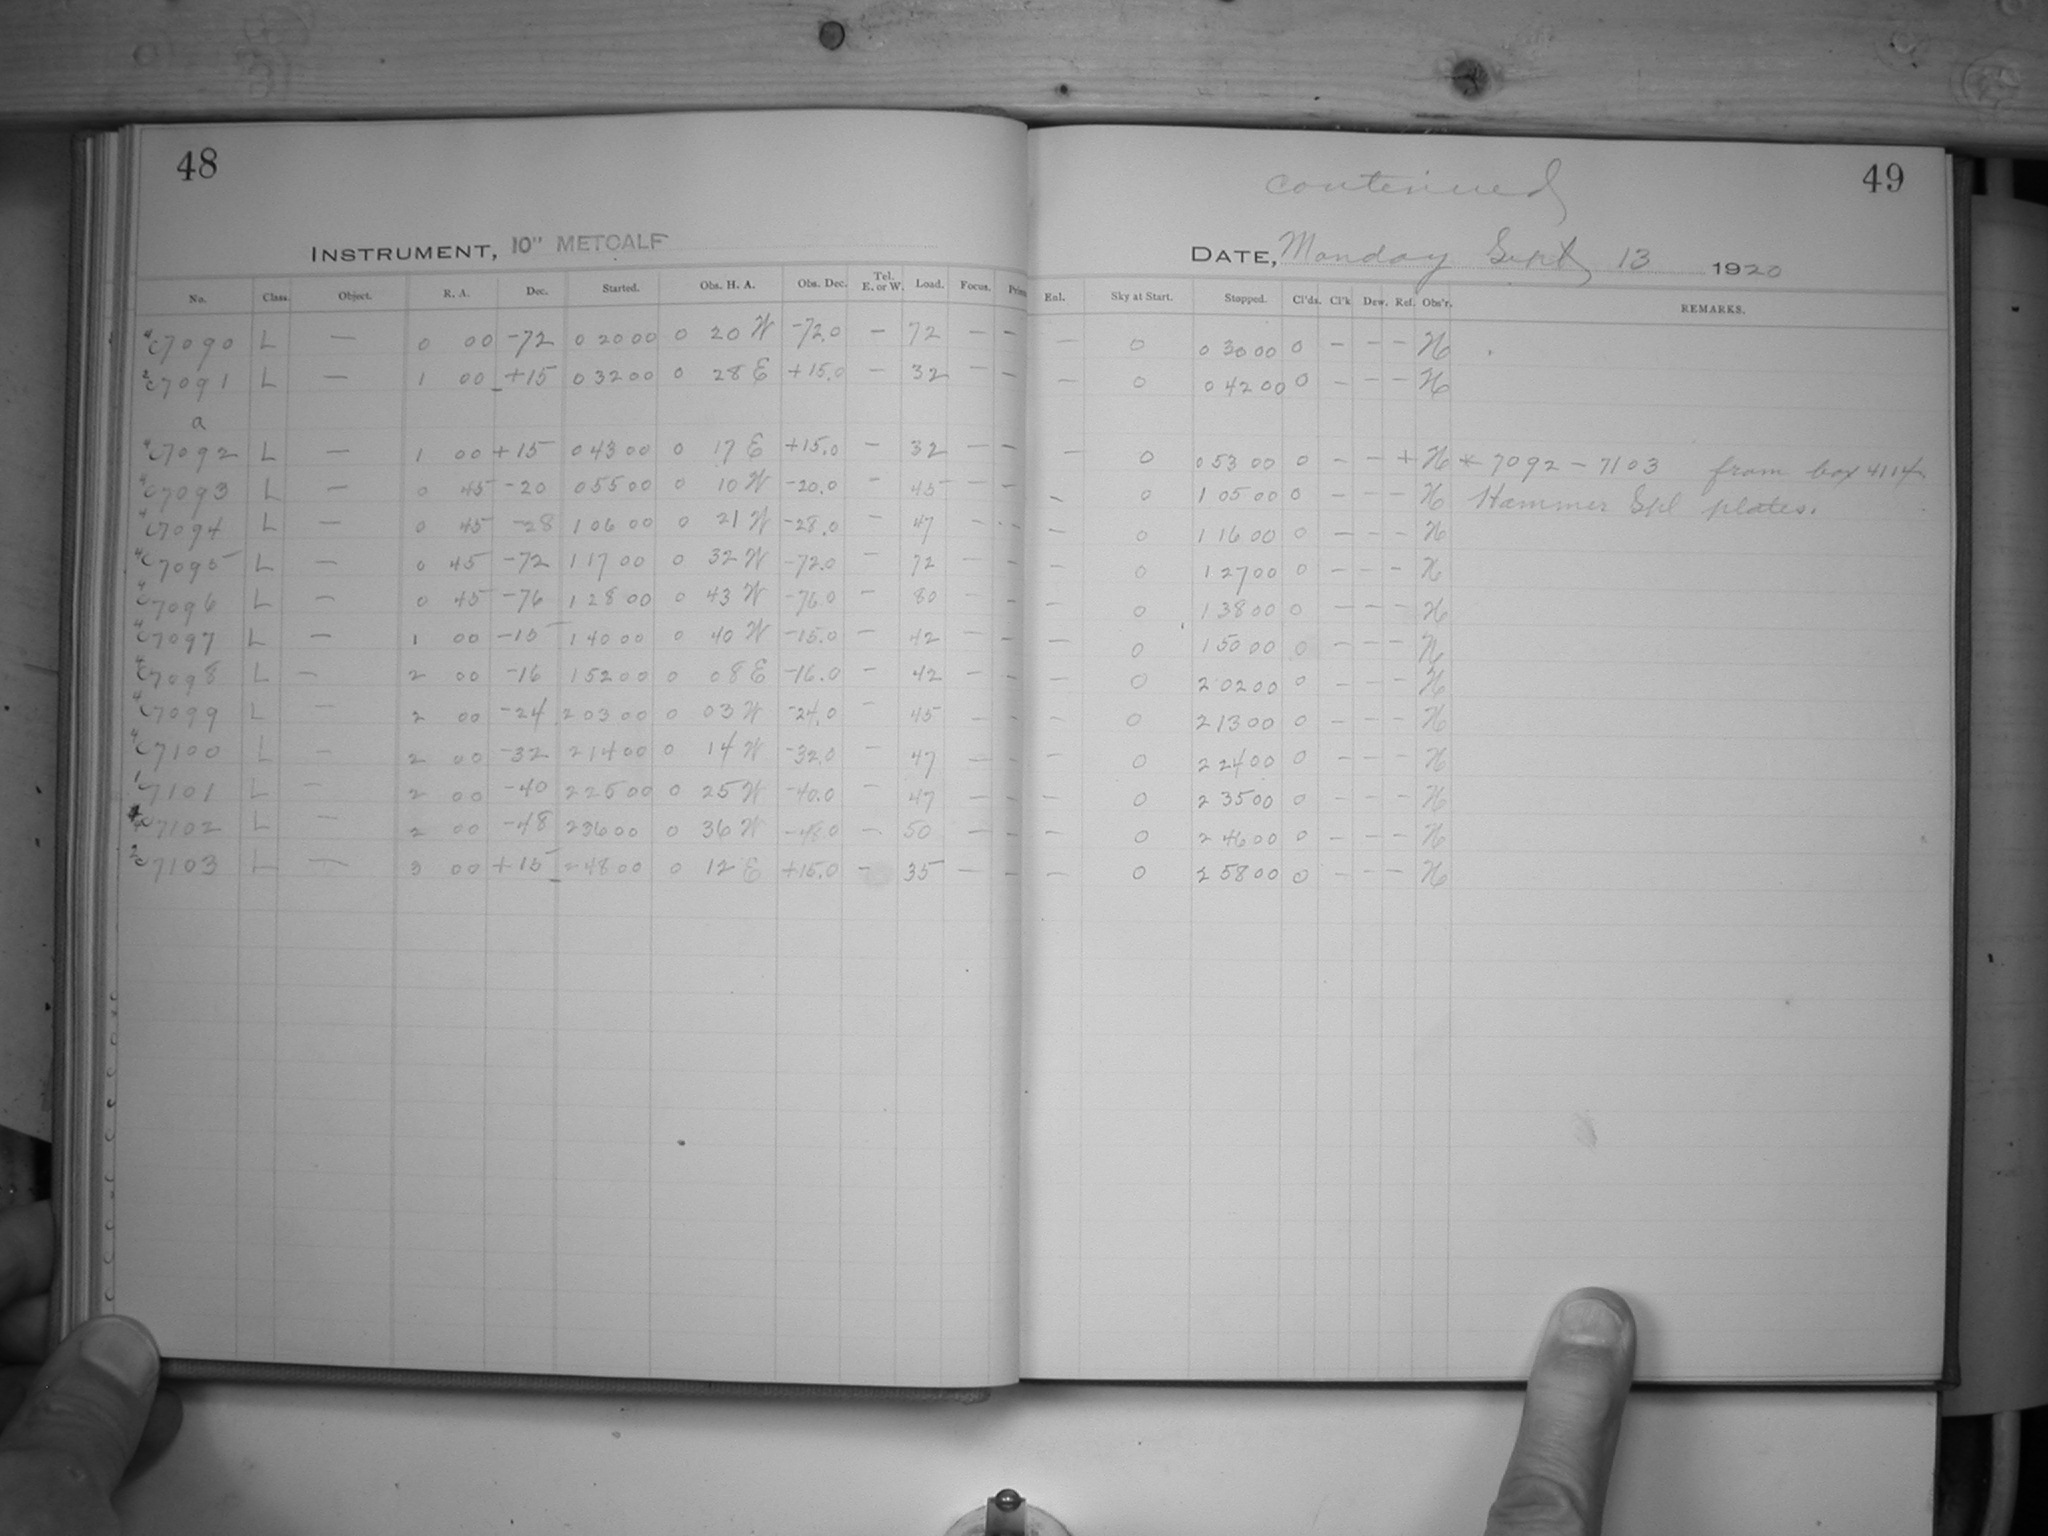 48
INSTRUMENT, 10" METCALF
No. Class. Object. R. A. Dec. Started. Obs. H. A. Obs. Dec. Tel. E. or W. Load. Focus.
4 c7090 L — 0 00 -72 0 20 00 0 20 W -72.0 — 72 — —
2 c7091 L — 1 00 +15 0 32 00 0 28 E +15.0 — 32 — —
a
4 c7092 L — 1 00 +15 0 43 00 0 17 E +15.0 — 32 — —
4 c7093 L — 0 45 -20 0 55 00 0 10 W -20.0 — 45 — —
4 c7094 L — 0 45 -28 1 06 00 0 21 W -28.0 — 47 — —
4 c7095 L — 0 45 -72 1 17 00 0 32 W -72.0 — 72 — —
4 c7096 L — 0 45 -76 1 28 00 0 43 W -76.0 — 80 — —
4 c7097 L — 1 00 -15 1 40 00 0 40 W -15.0 — 42 — —
4 c7098 L — 2 00 -16 1 52 00 0 08 E -16.0 — 42 — —
4 c7099 L — 2 00 -24 2 03 00 0 03 W -24.0 — 45 — —
4 c7100 L — 2 00 -32 2 14 00 0 14 W -32.0 — 47 — —
7101 L — 2 00 -40 2 25 00 0 25 W -40.0 — 47 — —
c7102 L — 2 00 -48 2 36 00 0 36 W -48.0 — 50 — —
2 c7103 L — 3 00 +15 2 48 00 0 12 E +15.0 — 35 — —
49
continued
DATE, Monday Sept 13 1920
Enl. Sky at Start. Stopped. Cl'ds. Cl'k Dew. Ref. Obs'r. REMARKS.
— 0 0 30 00 0 — — — H
— 0 0 42 00 0 — — — H
— 0 0 53 00 0 — — + H * 7092 – 7103 from box 4114
— 0 1 05 00 0 — — — H Hammer Spl plates.
— 0 1 16 00 0 — — — H
— 0 1 27 00 0 — — — H
— 0 1 38 00 0 — — — H
— 0 1 50 00 0 — — — H
— 0 2 02 00 0 — — — H
— 0 2 13 00 0 — — — H
— 0 2 24 00 0 — — — H
— 0 2 35 00 0 — — — H
— 0 2 46 00 0 — — — H
— 0 2 58 00 0 — — — H